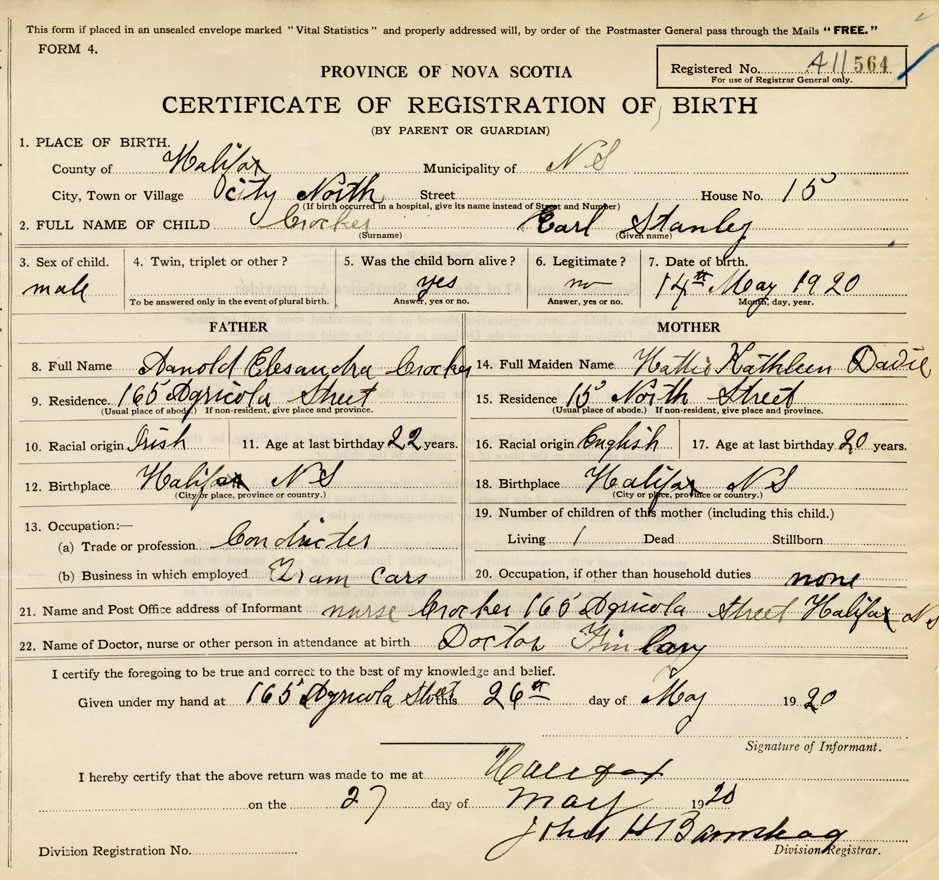 This form if placed in an unsealed envelope marked "Vital Statistics" and properly addressed will, by order of the Postmaster General pass through the Mails "FREE."
FORM 4.
Registered No. 411 564
For use of Registrar General only.
PROVINCE OF NOVA SCOTIA
CERTIFICATE OF REGISTRATION OF BIRTH
(BY PARENT OR GUARDIAN)
1. PLACE OF BIRTH.
County of Halifax Municipality of N S
City, Town or Village city North Street House No. 15
(If birth occurred in a hospital, give its name instead of Street and Number)
2. FULL NAME OF CHILD Crocker Earl Stanley
(Surname) (Given name)
3. Sex of child. 4. Twin, triplet or other? 5. Was the child born alive? 6. Legitimate? 7. Date of birth.
male yes no 14th May 1920
To be answered only in the event of plural birth. Answer, yes or no. Answer, yes or no. Month, day, year.
FATHER MOTHER
8. Full Name Arnold Elesandra Crocker 14. Full Maiden Name Hattie Kathleen
9. Residence. 165 Agricola Street 15. Residence 15 North Street
(Usual place of abode.) If non-resident, give place and province. (Usual place of abode.) If non-resident, give place and province.
10. Racial origin Irish 11. Age at last birthday 22 years. 16. Racial origin English 17. Age at last birthday 20 years.
12. Birthplace Halifax N S 18. Birthplace Halifax N S
(City or place, province or country.) (City or place, province or country.)
13. Occupation:— 19. Number of children of this mother (including this child.)
(a) Trade or profession Conducter Living 1 Dead Stillborn
(b) Business in which employed Tram Cars 20. Occupation, if other than household duties none
21. Name and Post Office address of Informant nurse Crocker 165 Agricola Street Halifax N S
22. Name of Doctor, nurse or other person in attendance at birth Doctor Finlay
I certify the foregoing to be true and correct to the best of my knowledge and belief.
Given under my hand at 165 Agricola Street this 26th day of May 1920
Signature of Informant.
I hereby certify that the above return was made to me at Halifax
on the 27 day of May 1920
John H
Division Registration No. Division Registrar.